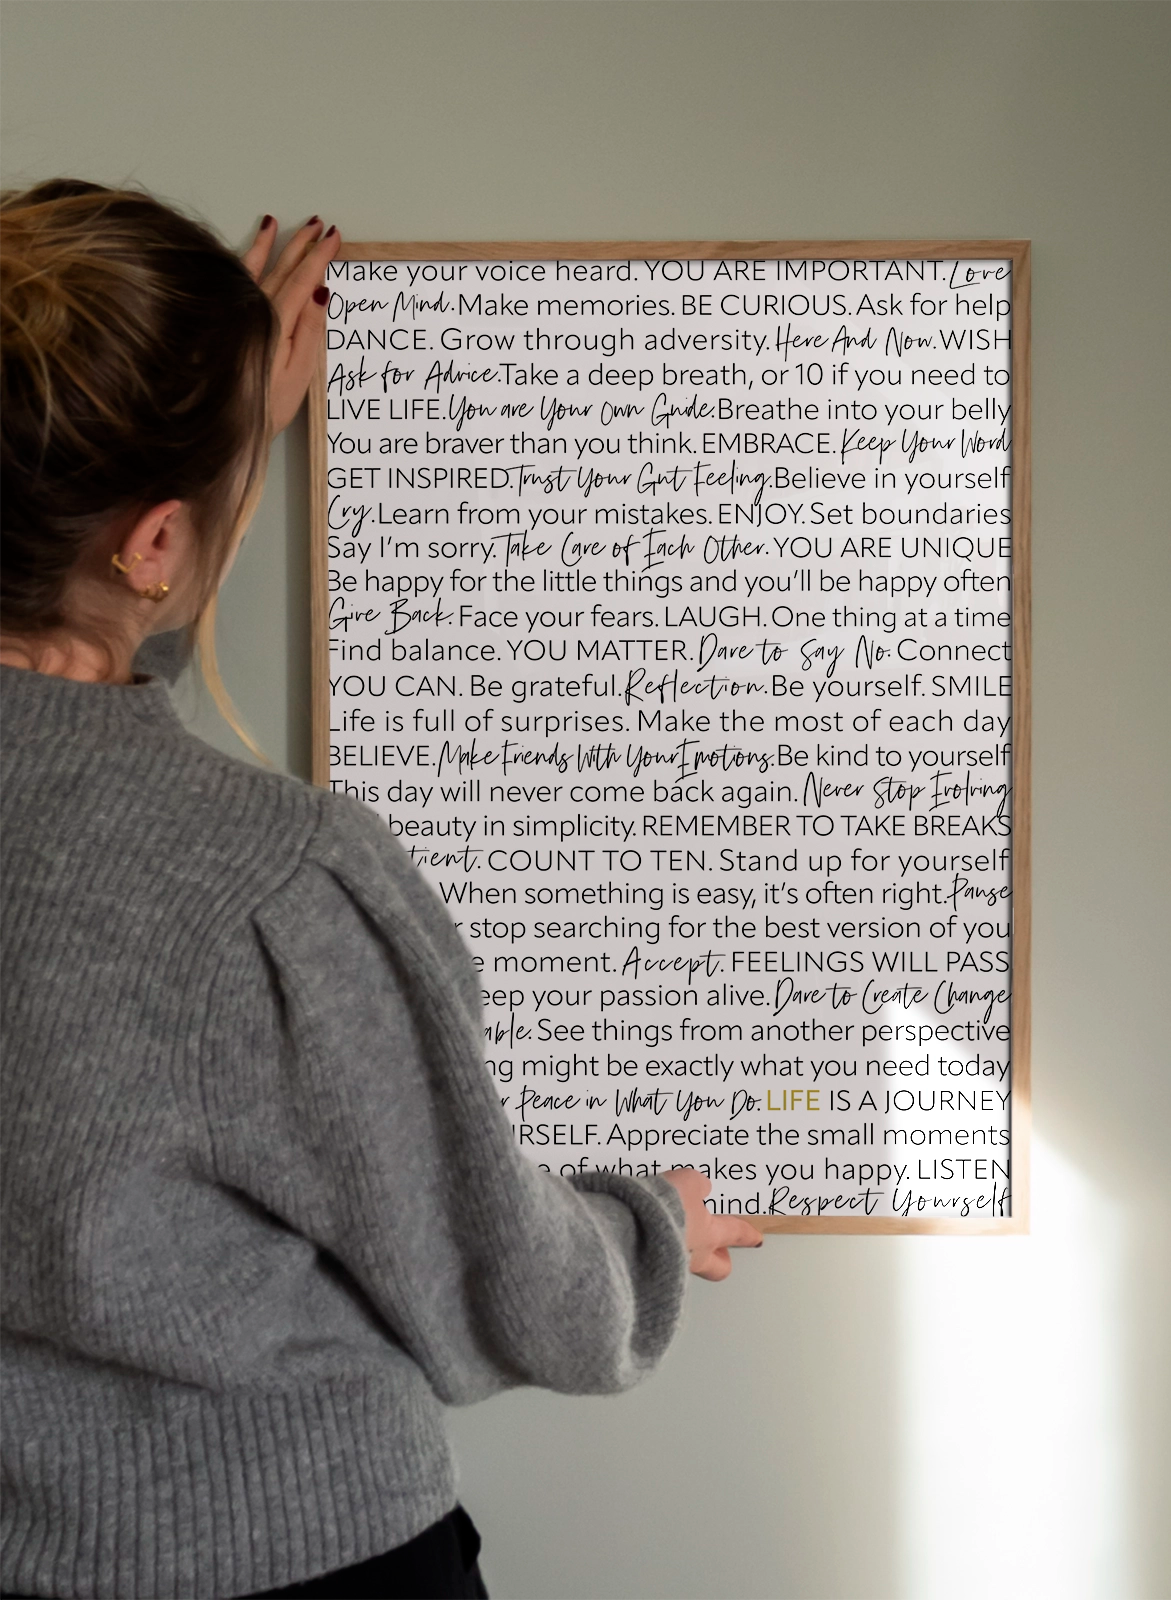 Make your voice heard. YOU ARE IMPORTANT. Love
Open Mind. Make memories. BE CURIOUS. Ask for help
DANCE. Grow through adversity. Here And Now. WISH
Ask for Advice. Take a deep breath, or 10 if you need to
LIVE LIFE. You are Your Own Guide. Breathe into your belly
You are braver than you think. EMBRACE. Keep Your Word
GET INSPIRED. Trust Your Gut Feeling. Believe in yourself
Cry. Learn from your mistakes. ENJOY. Set boundaries
Say I'm sorry. Take Care of Each Other. YOU ARE UNIQUE
Be happy for the little things and you'll be happy often
Give Back. Face your fears. LAUGH. One thing at a time
Find balance. YOU MATTER. Dare to Say No. Connect
YOU CAN. Be grateful. Reflection. Be yourself. SMILE
Life is full of surprises. Make the most of each day
BELIEVE. Make Friends With Your Emotions. Be kind to yourself
This day will never come back again. Never Stop Evolving
beauty in simplicity. REMEMBER TO TAKE BREAKS
tient. COUNT TO TEN. Stand up for yourself
When something is easy, it's often right. Pause
r stop searching for the best version of you
e moment. Accept. FEELINGS WILL PASS
eep your passion alive. Dare to Create Change
able. See things from another perspective
ng might be exactly what you need today
r Peace in What You Do. LIFE IS A JOURNEY
RSELF. Appreciate the small moments
e of what makes you happy. LISTEN
mind. Respect Yourself